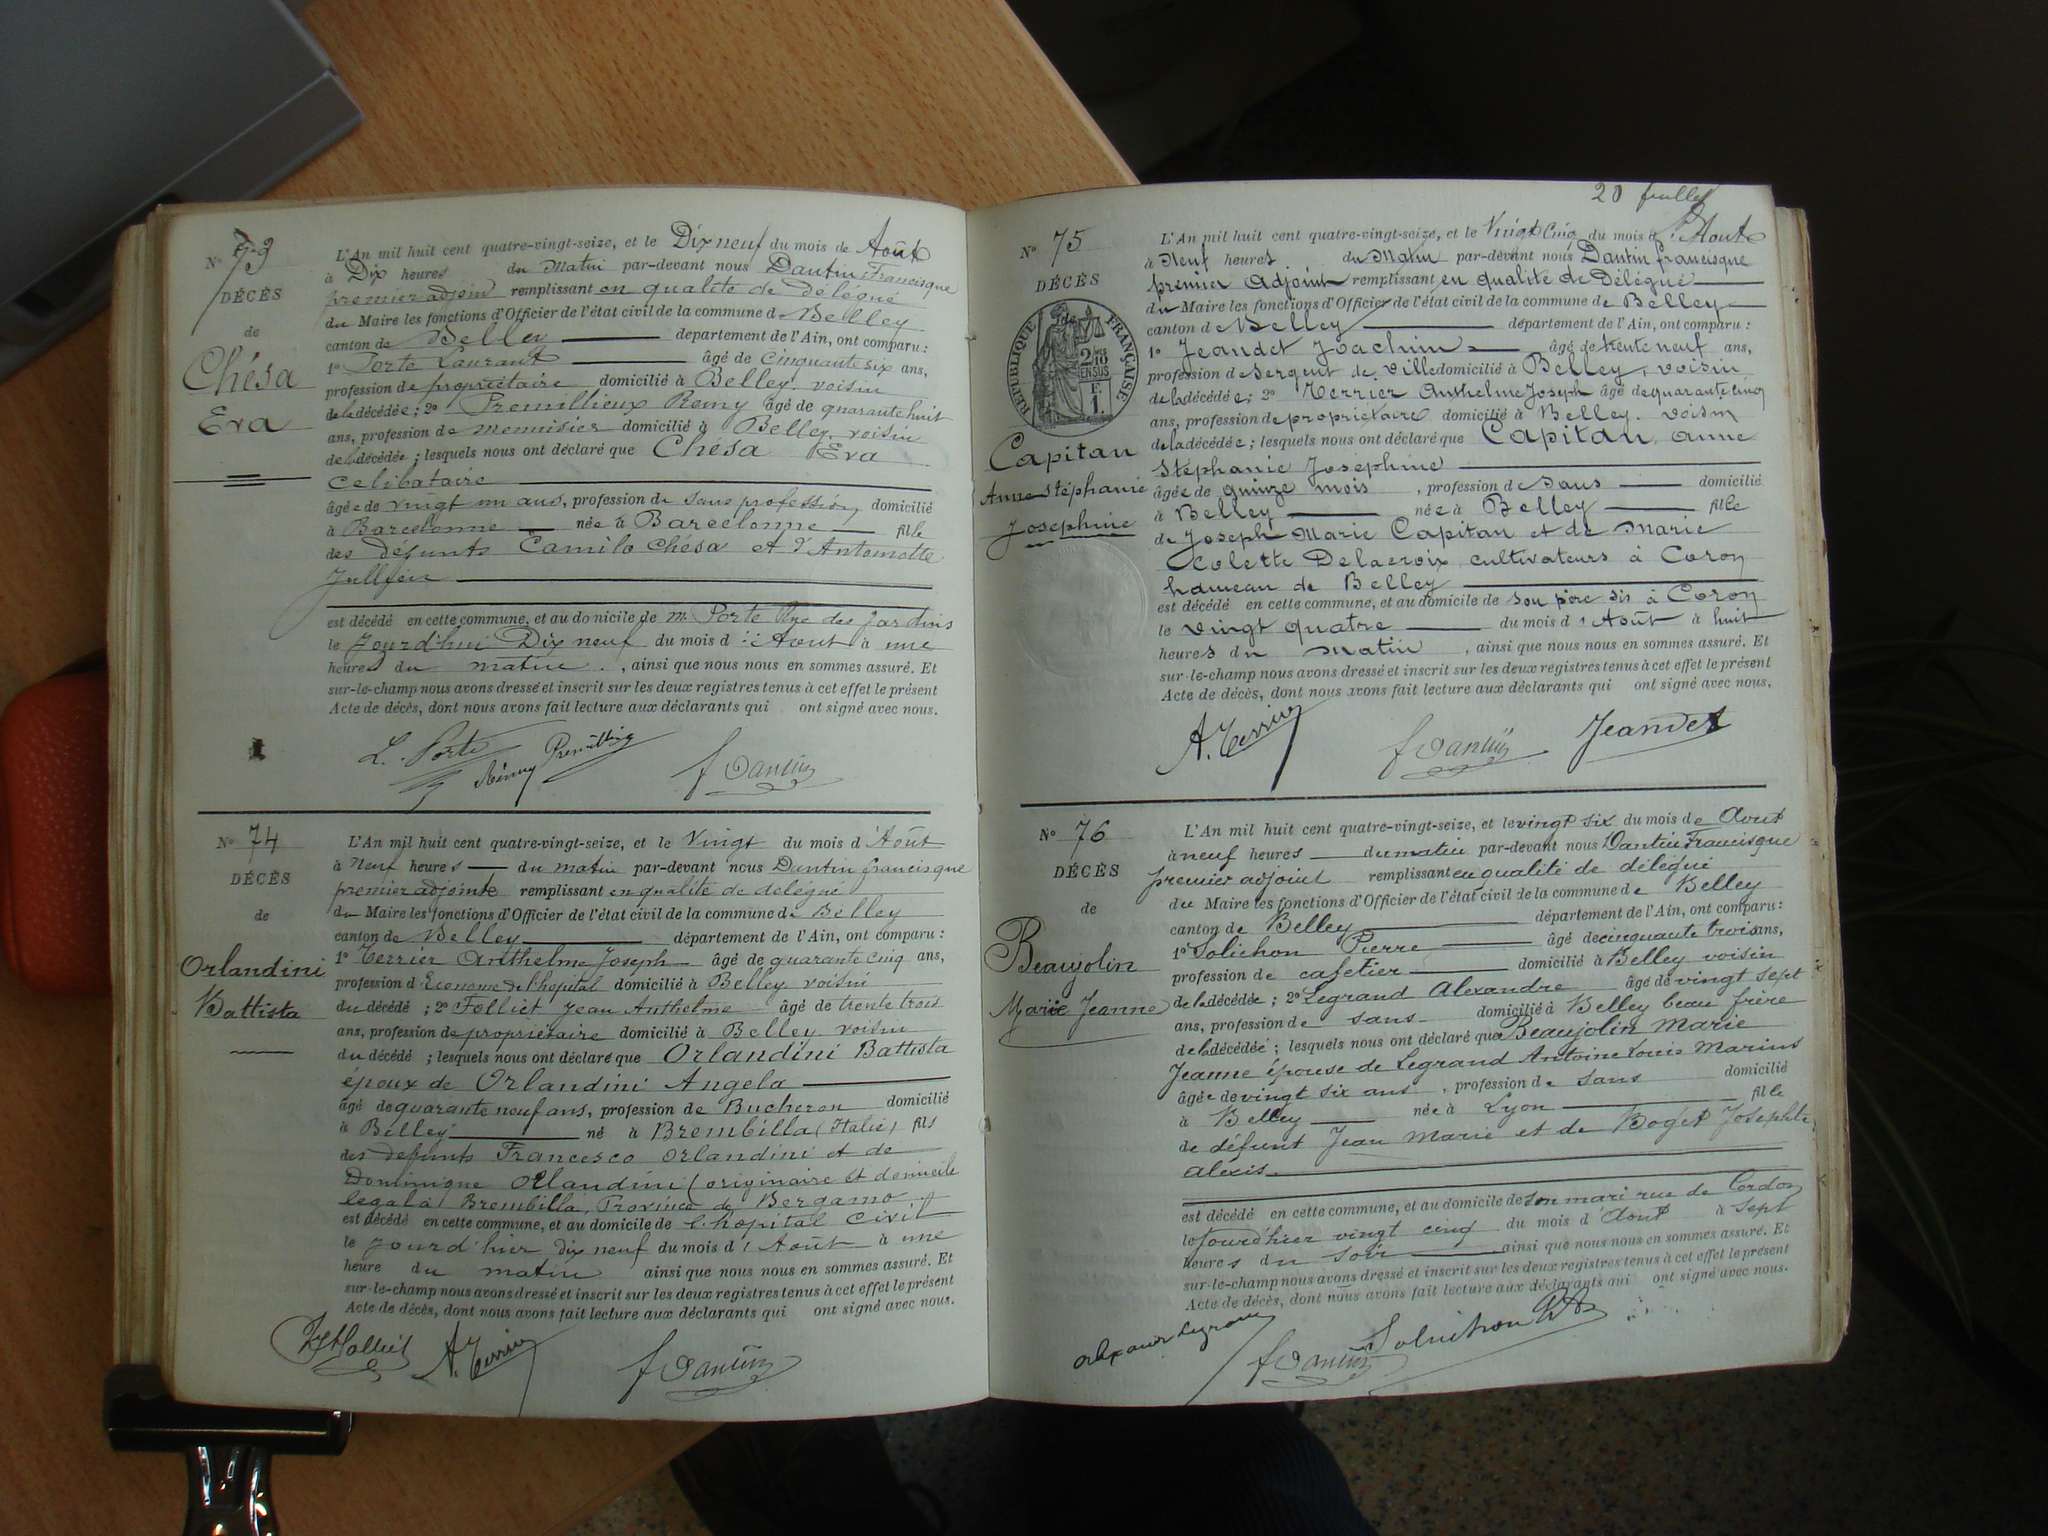 N° 73
DÉCÈS
de
Chésa
Eva
L'An mil huit cent quatre-vingt-seize, et le Dix neuf du mois de Août
à Dix heures du Matin par-devant nous Dantin Francisque
premier adjoin remplissant en qualité de Délégué
du Maire les fonctions d'Officier de l'état civil de la commune de Belley
canton de Belley département de l'Ain, ont comparu :
1° Porte Laurant âgé de Cinquante six ans,
profession de propriétaire domicilié à Belley, voisin
de la décédée ; 2° Premillieux Remy âgé de quarante huit
ans, profession de menuisier domicilié à Belley, voisin
de la décédée ; lesquels nous ont déclaré que Chésa Eva
Celibataire
âgée de vingt un ans, profession de sans profession domicilié
à Barcelonne née à Barcelonne fille
des défunts Camilo Chésa et d'Antoinette
Jullien
est décédé en cette commune, et au domicile de M. Porte Rue des Jardins
le Jourd'hui Dix neuf du mois d'Aout à une
heure du matin, ainsi que nous nous en sommes assuré. Et
sur-le-champ nous avons dressé et inscrit sur les deux registres tenus à cet effet le présent
Acte de décès, dont nous avons fait lecture aux déclarants qui ont signé avec nous.
L. Porte Rémy f Dantin
N° 74
DÉCÈS
de
Orlandini
Battista
L'An mil huit cent quatre-vingt-seize, et le Vingt du mois d'Août
à Neuf heures du matin par-devant nous Dantin francisque
premier adjoint remplissant en qualité de délégué
du Maire les fonctions d'Officier de l'état civil de la commune de Belley
canton de Belley département de l'Ain, ont comparu :
1° Terrier Anthelme Joseph âgé de quarante cinq ans,
profession d'Econome de l'hopital domicilié à Belley voisin
du décédé ; 2° Folliet Jean Anthelme âgé de trente trois
ans, profession de propriétaire domicilié à Belley voisin
du décédé ; lesquels nous ont déclaré que Orlandini Battista
époux de Orlandini Angela
âgé de quarante neuf ans, profession de Bucheron domicilié
à Belley né à Brembilla (Italie) fils
des défunts Francesco Orlandini et de
Dominique Orlandini (originaire et domicile
legal à Brembilla, Province de Bergamo
est décédé en cette commune, et au domicile de l'hopital Civil
le jourd'hier dix neuf du mois d'Août à une
heure du matin ainsi que nous nous en sommes assuré. Et
sur-le-champ nous avons dressé et inscrit sur les deux registres tenus à cet effet le présent
Acte de décès, dont nous avons fait lecture aux déclarants qui ont signé avec nous.
A. Terrier f Dantin
20 feuillet
N° 75
DÉCÈS
de
RÉPUBLIQUE FRANÇAISE
2/10 EN SUS
Capitan
Anne Stéphanie
Joséphine
L'An mil huit cent quatre-vingt-seize, et le Vingt Cinq du mois d'Aout
à Neuf heures du Matin par-devant nous Dantin francisque
premier Adjoint remplissant en qualité de Délégué
du Maire les fonctions d'Officier de l'état civil de la commune de Belley
canton de Belley département de l'Ain, ont comparu :
1° Jeandet Joachim âgé de trente neuf ans,
profession de Sergent de Ville domicilié à Belley, voisin
de la décédée ; 2° Terrier Anthelme Joseph âgé de quarante cinq
ans, profession de propriétaire domicilié à Belley, voisin
de la décédée ; lesquels nous ont déclaré que Capitan, Anne
Stéphanie Joséphine
âgée de quinze mois, profession de Sans domicilié
à Belley née à Belley fille
de Joseph Marie Capitan et de Marie
Colette Delacroix cultivateurs à Coron
hameau de Belley
est décédé en cette commune, et au domicile de son père sis à Coron
le Vingt quatre du mois d'Août à huit
heures du Matin, ainsi que nous nous en sommes assuré. Et
sur-le-champ nous avons dressé et inscrit sur les deux registres tenus à cet effet le présent
Acte de décès, dont nous avons fait lecture aux déclarants qui ont signé avec nous.
A. Terrier f Dantin Jeandet
N° 76
DÉCÈS
de
Beaujolin
Marie Jeanne
L'An mil huit cent quatre-vingt-seize, et le vingt six du mois de Aout
à neuf heures du matin par-devant nous Dantin Francisque
premier adjoint remplissant en qualité de délégué
du Maire les fonctions d'Officier de l'état civil de la commune de Belley
canton de Belley département de l'Ain, ont comparu :
1° Solichon Pierre âgé de cinquante trois ans,
profession de cafetier domicilié à Belley voisin
de la décédée ; 2° Legrand Alexandre âgé de vingt sept
ans, profession de sans domicilié à Belley beau frère
de la décédée ; lesquels nous ont déclaré que Beaujolin Marie
Jeanne épouse de Legrand Antoine Louis Marius
âgée de vingt six ans, profession de sans domicilié
à Belley née à Lyon fille
de défunt Jean Marie et de Boget Josephte
Alexis
est décédé en cette commune, et au domicile de son mari rue de Cordon
le Jourd'hier vingt cinq du mois d'Aout à sept
heures du soir ainsi que nous nous en sommes assuré. Et
sur-le-champ nous avons dressé et inscrit sur les deux registres tenus à cet effet le présent
Acte de décès, dont nous avons fait lecture aux déclarants qui ont signé avec nous.
f Dantin Solichon